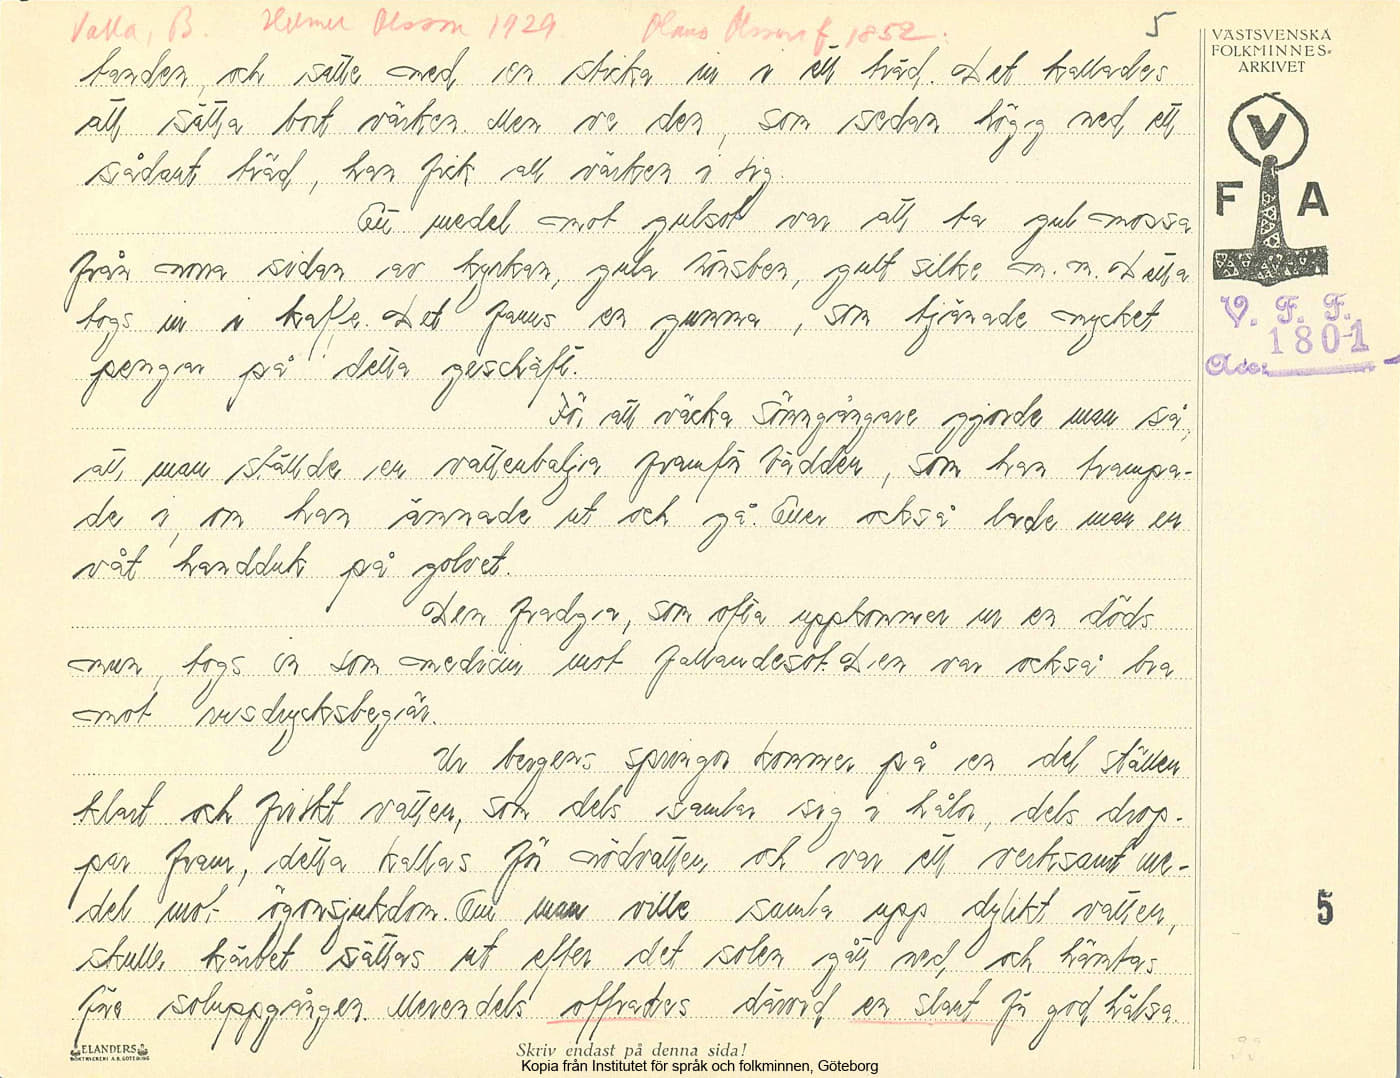 Valla, B. Hilmer Olsson 1929. Olaus Olsson f. 1852.
5
VÄSTSVENSKA
FOLKMINNES-
ARKIVET
V
F A
V. F. F.
1801
Acc:
tanden, och satte ned en sticka in i ett träd. Det kallades
att sätta bort värken. Men ve den, som sedan högg ned ett
sådant träd, han fick all värken i sig.
Ett medel mot gulsot var att ta gul mossa
från norra sidan av kyrkan, gula hönsben, gult silke m. m. Detta
togs in i kaffe. Det fanns en gumma, som tjänade mycket
pengar på detta geschäft.
För att väcka sömngångare gjorde man så,
att man ställde en vattenbalja framför bädden, som han trampa-
de i, om han ämnade ut och gå. Eller också lade man en
våt handduk på golvet.
Den fradga, som ofta uppkommer ur en döds
mun, togs in som medicin mot fallandesot. Den var också bra
mot rusdrycksbegär.
Ur bergens springor kommer på en del ställen
klart och friskt vatten, som dels samlar sig i hålor, dels drop-
par fram, detta kallas för nödvatten och var ett verksamt me-
del mot ögonsjukdom. Om man ville samla upp dylikt vatten,
skulle kärlet sättas ut efter det solen gått ned, och hämtas
före soluppgången. Merendels offrades därvid en slant för god hälsa.
5
ELANDERS
BOKTRYCKERI A.B. GÖTEBORG
Skriv endast på denna sida!
Kopia från Institutet för språk och folkminnen, Göteborg